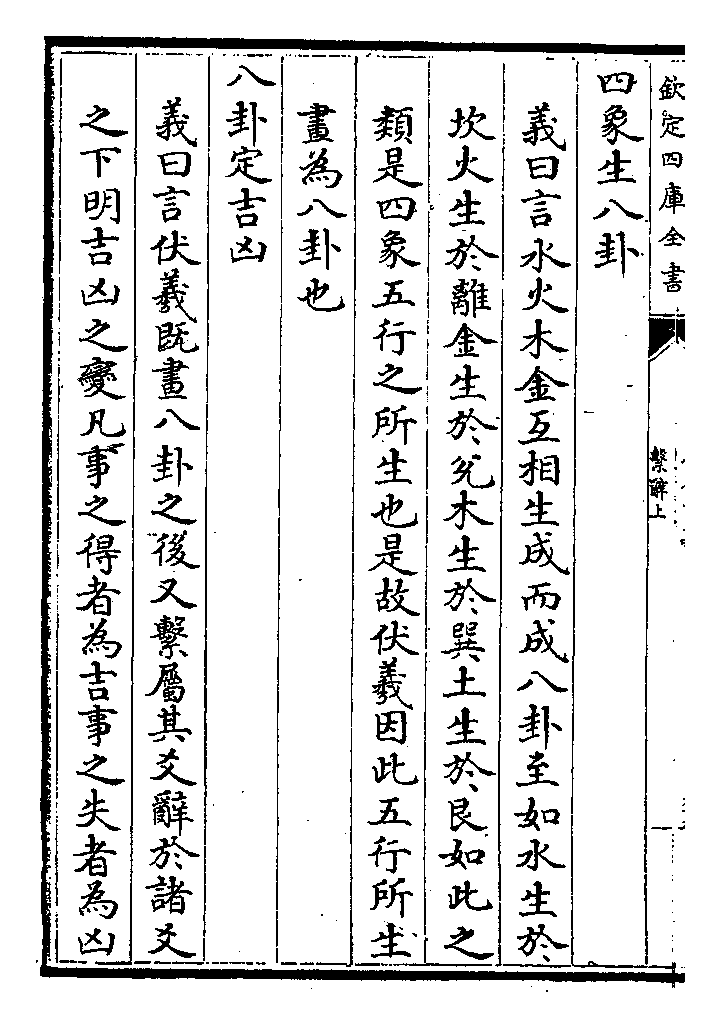 欽定四庫全書
繫辭上
四象生八卦
義曰言水火木金互相生成而成八卦至如水生於
坎火生於離金生於兊木生於巽土生於艮如此之
類是四象五行之所生也是故伏羲因此五行所生
畫為八卦也
八卦定吉凶
義曰言伏羲既畫八卦之後又繫屬其爻辭於諸爻
之下明吉凶之變凡事之得者為吉事之失者為凶